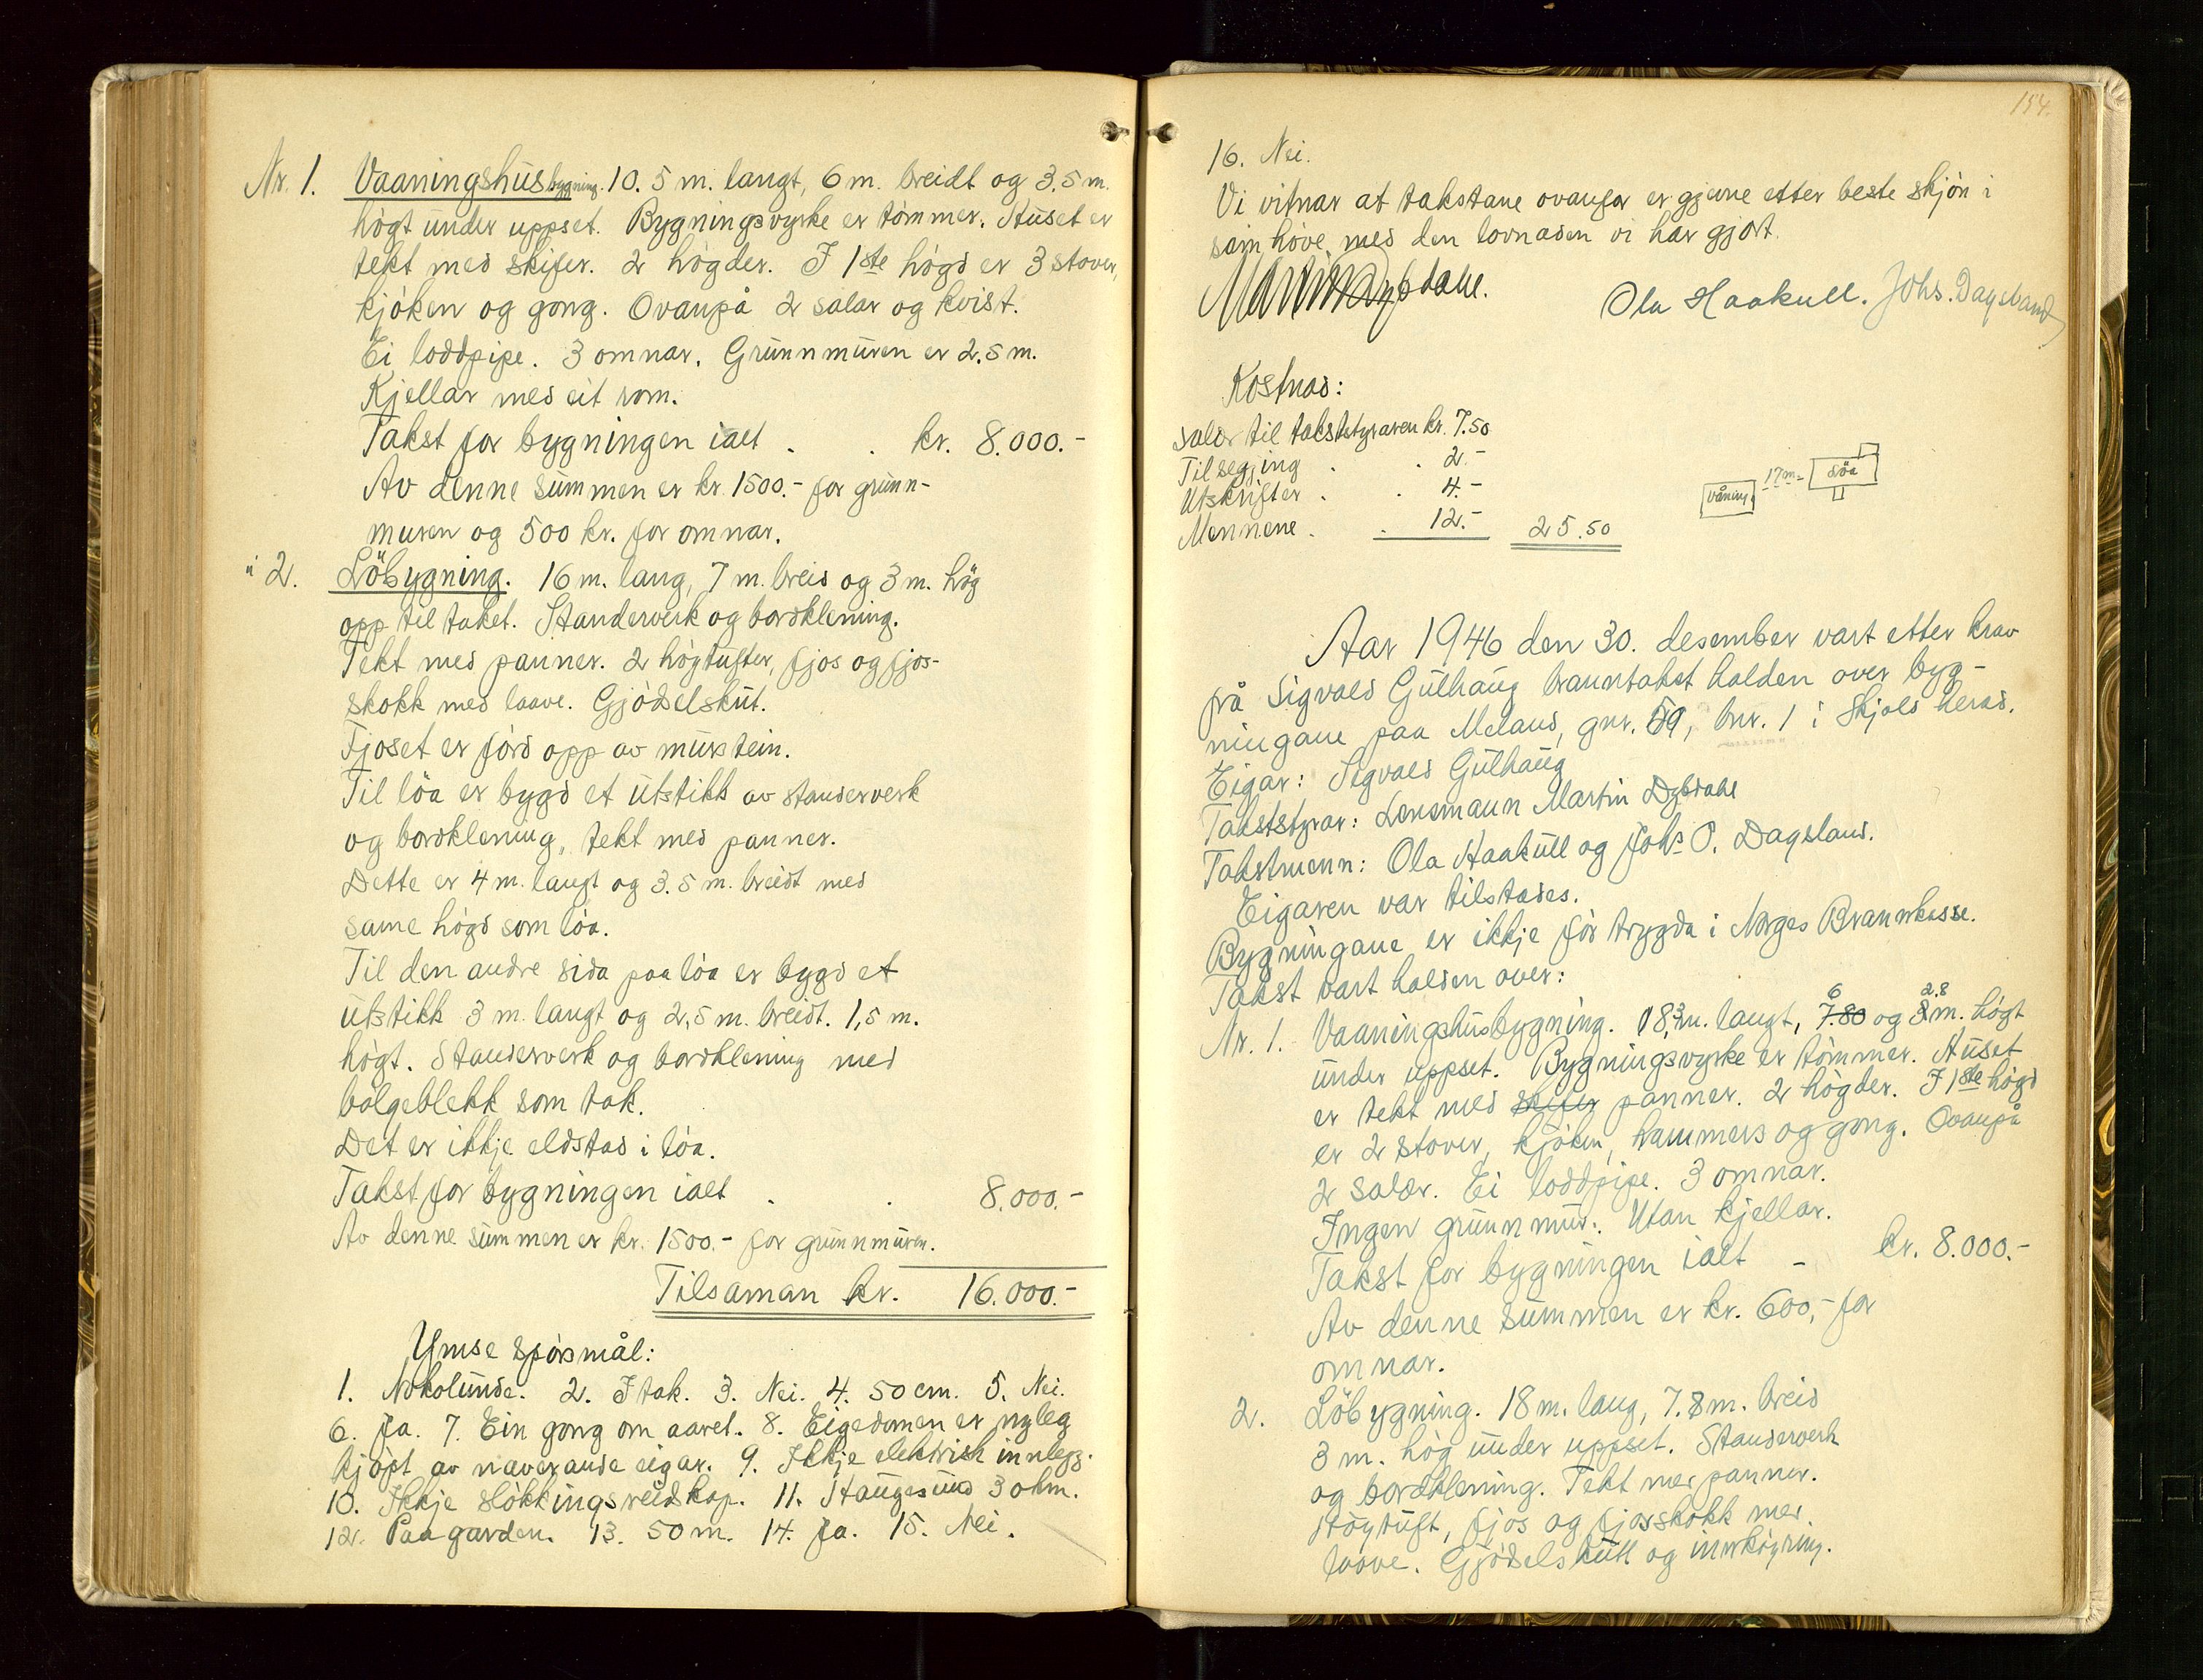 Nr. 1. Vaaningshusbygning. 10.5 m. langt, 6 m. breidt og 3.5 m.
högt under uppset. Bygningsvyrke er tömmer. Huset er
tekt med skifer. 2 högder. I 1ste högd er 3 stover,
kjöken og gong. Ovanpå 2 salar og kvist.
Ei loddpipe. 3 omnar. Grunnmuren er 2.5 m.
Kjellar med eit rom.
Takst for bygningen ialt . . kr. 8.000.-
Av denne summen er kr. 1500.- for grunn-
muren og 500 kr. for omnar.
" 2. Löbygning. 16 m. lang, 7 m. breid og 3 m. hög
opp til taket. Standerverk og bordklening.
Tekt med panner. 2 högtufter, fjos og fjos-
skokk med laave. Gjödselskut.
Fjoset er förd opp av murstein.
Til löa er bygd et utstikk av standerverk
og bordklening, tekt med panner.
Dette er 4 m. langt og 3.5 m. breidt med
same högd som löa.
Til den andre sida paa löa er bygd et
utstikk 3 m. langt og 2,5 m. breidt. 1,5 m.
högt. Standerverk og bordklening med
bölgeblekk som tak.
Det er ikkje eldstad i löa.
Takst for bygningen ialt . . 8.000.-
Av denne summen er kr. 1500.- for grunnmuren.
Tilsaman kr. 16.000.-
Ymse spörsmål:
1. Nokolunde. 2. I tak. 3. Nei. 4. 50 cm. 5. Nei.
6. Ja. 7. Ein gong om aaret. 8. Eigedomen er nyleg
kjöpt av naverande eigar. 9. Ikkje elektrisk innlegg.
10. Ikkje slökkingsreidskap. 11. Haugesund 3 ohm.
12. Paa garden. 13. 50 m. 14. Ja. 15. Nei.
154.
16. Nei.
Vi vitnar at takstane ovanfor er gjevne etter beste skjön i
samhöve med den lovnaden vi har gjort.
Martin Dybdahl.
Ola Haakull. Johs. Dagsland
Kostnad:
Salær til takststyraren kr. 7.50
Tilsegjing . . 2.-
Utskrifter . . 4.-
Mennene . . 12.- 25.50
Våning 17 m. Löa
Aar 1946 den 30. desember vart etter krav
frå Sigvald Gulhaug branntakst halden over byg-
ningane paa Meland, gnr. 59, bnr. 1 i Skjold herad.
Eigar: Sigvald Gulhaug
Takststyrar: Lensmann Martin Dybdahl
Takstmenn: Ola Haakull og Johs. O. Dagsland.
Eigaren var tilstades.
Bygningane er ikkje för trygda i Norges Brannkasse.
Takst vart halden over:
6 2,8
Nr. 1. Vaaningshusbygning. 18,3 m. langt, 7.80 og 3 m. högt
under uppset. Bygningsvyrke er tömmer. Huset
er tekt med skifer panner. 2 högder. I 1ste högd
er 2 stover, kjöken, kammers og gong. Ovanpå
2 salar. Ei loddpipe. 3 omnar.
Ingen grunnmur. Utan kjellar.
Takst for bygningen ialt - kr. 8.000.-
Av denne summen er kr. 600,- for
omnar.
2. Löbygning. 18 m. lang, 7.8 m. breid
3 m. hög under uppset. Standerverk
og bordklening. Tekt med panner.
Höytuft, fjos og fjosskokk med
laave. Gjödselskutt og innköyring.